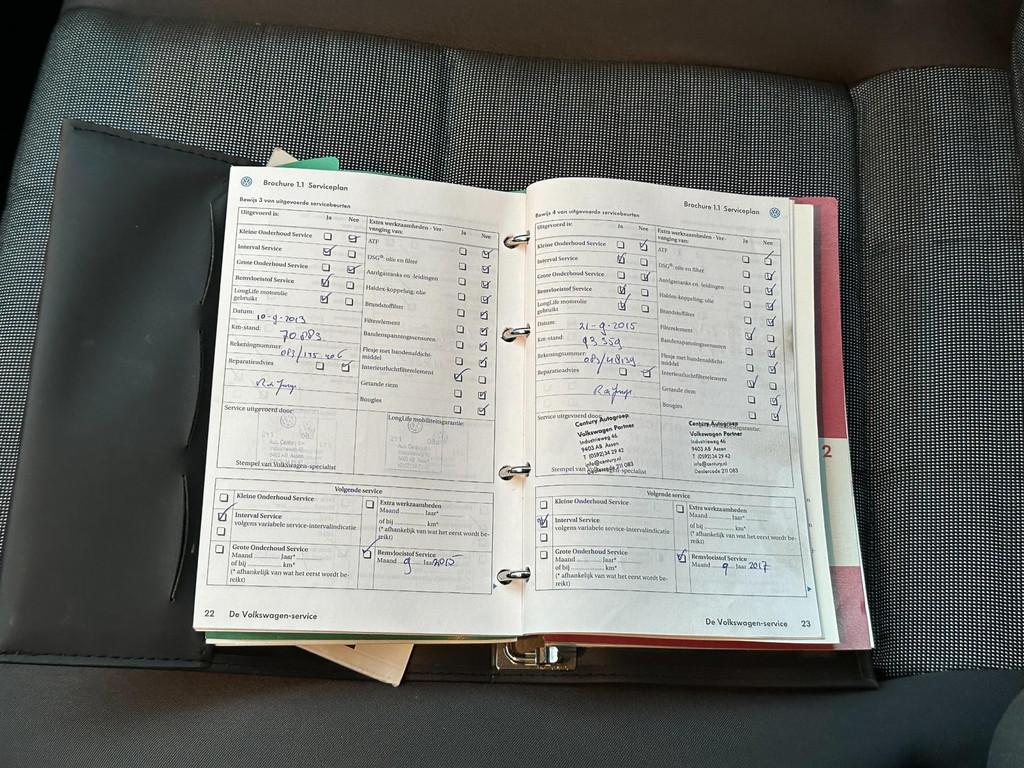 Brochure 1.1 Serviceplan
Bewijs 3 van uitgevoerde servicebeurten
Uitgevoerd is: Ja Nee
Extra werkzaamheden - Ver-
vanging van: Ja Nee
Kleine Onderhoud Service
Interval Service
Grote Onderhoud Service
Remvloeistof Service
LongLife motorolie
gebruikt
Datum: 10-9-2013
Km-stand: 70.883
Rekeningnummer:
Reparatieadvies
ATF
DSG®: olie en filter
Aardgastanks en -leidingen
Haldex-koppeling; olie
Brandstoffilter
Filterelement
Bandenspanningssensoren
Flesje met bandenafdicht-
middel
Interieurluchtfilterelement
Getande riem
Bougies
Service uitgevoerd door:
LongLife mobiliteitsgarantie:
Stempel van Volkswagen-specialist
Volgende service
Kleine Onderhoud Service
Interval Service
volgens variabele service-intervalindicatie
Grote Onderhoud Service
Maand Jaar*
of bij km*
(* afhankelijk van wat het eerst wordt be-
reikt)
Extra werkzaamheden
Maand Jaar*
of bij km*
(* afhankelijk van wat het eerst wordt be-
reikt)
Remvloeistof Service
Maand 9 Jaar 2015
22 De Volkswagen-service
Brochure 1.1 Serviceplan
Bewijs 4 van uitgevoerde servicebeurten
Uitgevoerd is: Ja Nee
Extra werkzaamheden - Ver-
vanging van: Ja Nee
Kleine Onderhoud Service
Interval Service
Grote Onderhoud Service
Remvloeistof Service
LongLife motorolie
gebruikt
Datum: 21-9-2015
Km-stand: 93359
Rekeningnummer:
Reparatieadvies
ATF
DSG®: olie en filter
Aardgastanks en -leidingen
Haldex-koppeling; olie
Brandstoffilter
Filterelement
Bandenspanningssensoren
Flesje met bandenafdicht-
middel
Interieurluchtfilterelement
Getande riem
Bougies
Service uitgevoerd door:
Century Autogroep
Volkswagen Partner
Industrieweg 46
9403 AB Assen
T (0592)34 29 42
info@century.nl
Dealercode 211 083
Century Autogroep
Volkswagen Partner
Industrieweg 46
9403 AB Assen
T (0592)34 29 42
info@century.nl
Dealercode 211 083
Stempel van Volkswagen-specialist
Volgende service
Kleine Onderhoud Service
Interval Service
volgens variabele service-intervalindicatie
Grote Onderhoud Service
Maand Jaar*
of bij km*
(* afhankelijk van wat het eerst wordt be-
reikt)
Extra werkzaamheden
Maand Jaar*
of bij km*
(* afhankelijk van wat het eerst wordt be-
reikt)
Remvloeistof Service
Maand 9 Jaar 2017
De Volkswagen-service 23
2